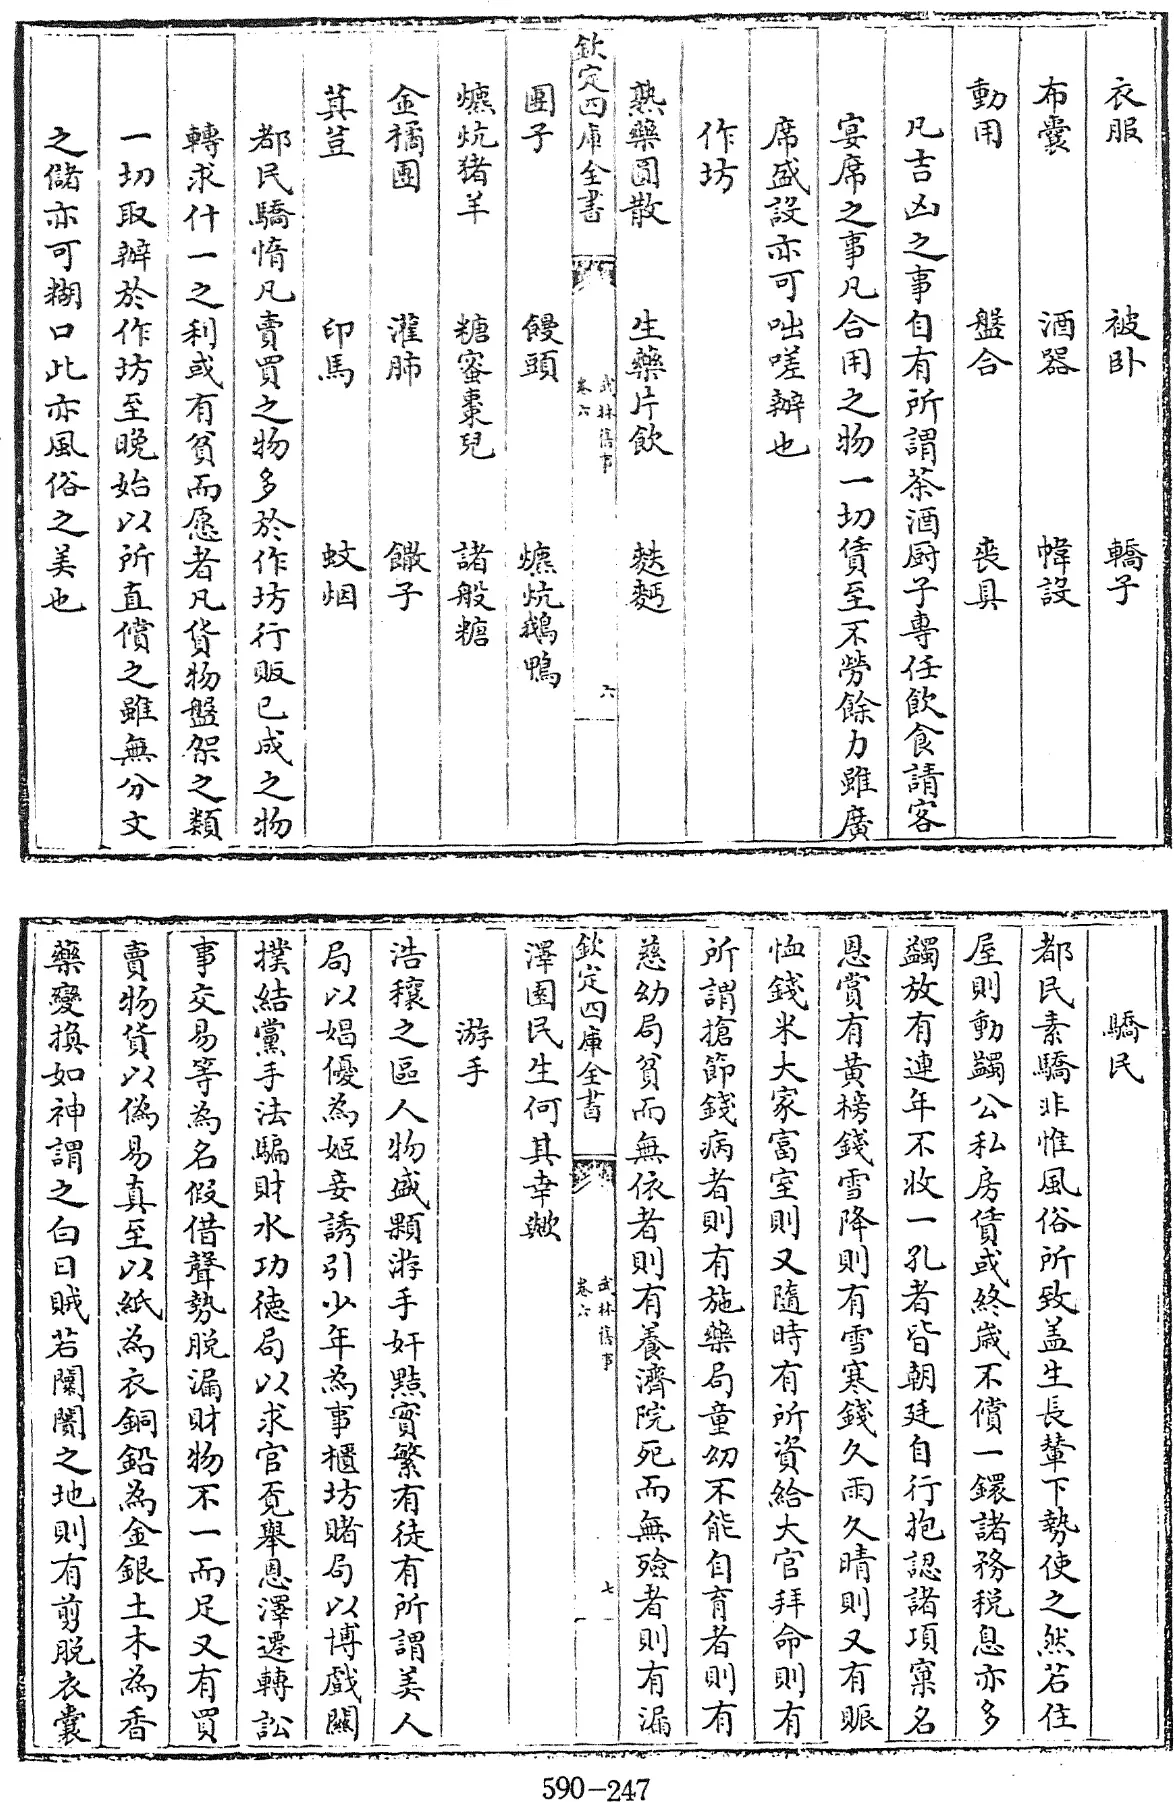 衣服　被卧　轎子
布囊　酒器　幃設
動用　盤合　喪具
凡吉凶之事自有所謂茶酒厨子專任飲食請客
宴席之事凡合用之物一切賃至不勞餘力雖廣
席盛設亦可咄嗟辦也
作坊
熟藥圓散　生藥片飲　麩麪
欽定四庫全書
武林舊事
卷六
六
團子　饅頭　爊炕鵝鴨
爊炕猪羊　糖蜜棗兒　諸般糖
金橘團　灌肺　饊子
萁荳　印馬　蚊烟
都民驕惰凡賣買之物多於作坊行販已成之物
轉求什一之利或有貧而愿者凡貨物盤架之類
一切取辦於作坊至晚始以所直償之雖無分文
之儲亦可糊口此亦風俗之美也
驕民
都民素驕非惟風俗所致盖生長輦下勢使之然若住
屋則動蠲公私房賃或終歲不償一鐶諸務税息亦多
蠲放有連年不收一孔者皆朝廷自行抱認諸項窠名
恩賞有黄榜錢雪降則有雪寒錢久雨久晴則又有賑
恤錢米大家富室則又隨時有所資給大官拜命則有
所謂搶節錢病者則有施藥局童幼不能自育者則有
慈幼局貧而無依者則有養濟院死而無殮者則有漏
欽定四庫全書
武林舊事
卷六
七
澤園民生何其幸歟
游手
浩穰之區人物盛顆游手奸黠實繁有徒有所謂美人
局以娼優為姬妾誘引少年為事櫃坊賭局以博戲關
撲結黨手法騙財水功德局以求官覔舉恩澤遷轉訟
事交易等為名假借聲勢脱漏財物不一而足又有買
賣物貨以偽易真至以紙為衣銅鉛為金銀土木為香
藥變換如神謂之白日賊若闤闠之地則有剪脱衣囊
590-247